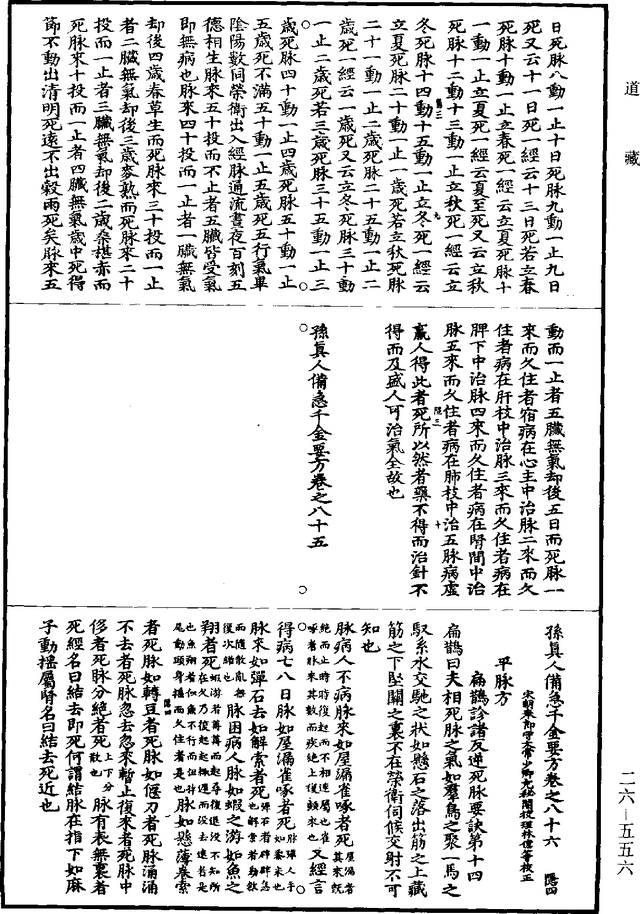 道藏
日死脉八動一止十日死脉九動一止九日
死又云十一日死一經云十三日死若立春
死脉十動一止立春死一經云立夏死脉十
一動一止立夏死一經云夏至死又云立秋
死脉十二動十三動一止立秋死一經云立
冬死脉十四動十五動一止立冬死一經云
立夏死脉二十動一止一歲死若立秋死脉
二十一動一止二歲死脉二十五動一止二
歲死一經云一歲死又云立冬死脉三十動
一止二歲死若三歲死脉三十五動一止三
歲死脉四十動一止四歲死脉五十動一止
五歲死不滿五十動一止五歲死五行氣畢
陰陽數同榮衛出入經脉通流晝夜百刻五
德相生脉來五十投而不止者五臟皆受氣
即無病也脉來四十投而一止者一臟無氣
却後四歲春草生而死脉來三十投而一止
者二臟無氣却後三歲麥熟而死脉來二十
投而一止者三臟無氣却後二歲桑椹赤而
死脉來十投而一止者四臟無氣歲中死得
節不動出清明死遠不出穀雨死矣脉來五
動而一止者五臟無氣却後五日而死脉一
來而久住者宿病在心主中治脉二來而久
住者病在肝枝中治脉三來而久住者病在
脾下中治脉四來而久住者病在腎間中治
脉五來而久住者病在肺枝中治五脉病虛
羸人得此者死所以然者藥不得而治針不
得而及盛人可治氣全故也
孫真人備急千金要方卷之八十五
孫真人備急千金要方卷之八十六 隱四
宋朝奉郎守太常少卿充秘閣校理林億等校正
平脉方
扁鵲診諸反逆死脉要訣第十四
扁鵲曰夫相死脉之氣如羣鳥之聚一馬之
馭系水交馳之狀如懸石之落出筋之上藏
筋之下堅關之裏不在榮衛伺候交射不可
知也
脉病人不病脉來如屋漏雀啄者死屋漏者其來既
絕而止時時復起而不相連屬也雀啄者脉來甚數而疾絕止復頓來也又經言
得病七八日脉如屋漏雀啄者死脉彈人手如黍米也
脉來如彈石去如解索者死彈石者辟辟急也解索者動數
而隨散亂無復次緒也脉困病人脉如蝦之游如魚之
翔者死蝦游者苒苒而起尋復退沒不知所在久乃復起起輒遲而沒去速者是
也魚翔者似魚不行而但掉尾動頭身搖而久住者是也脉如懸薄卷索
者死脉如轉豆者死脉如偃刀者死脉涌涌
不去者死脉忽去忽來暫止復來者死脉中
侈者死脉分絕者死上下分散也脉有表無裏者
死經名曰結去即死何謂結脉在指下如麻
子動搖屬腎名曰結去死近也
二六—五五六